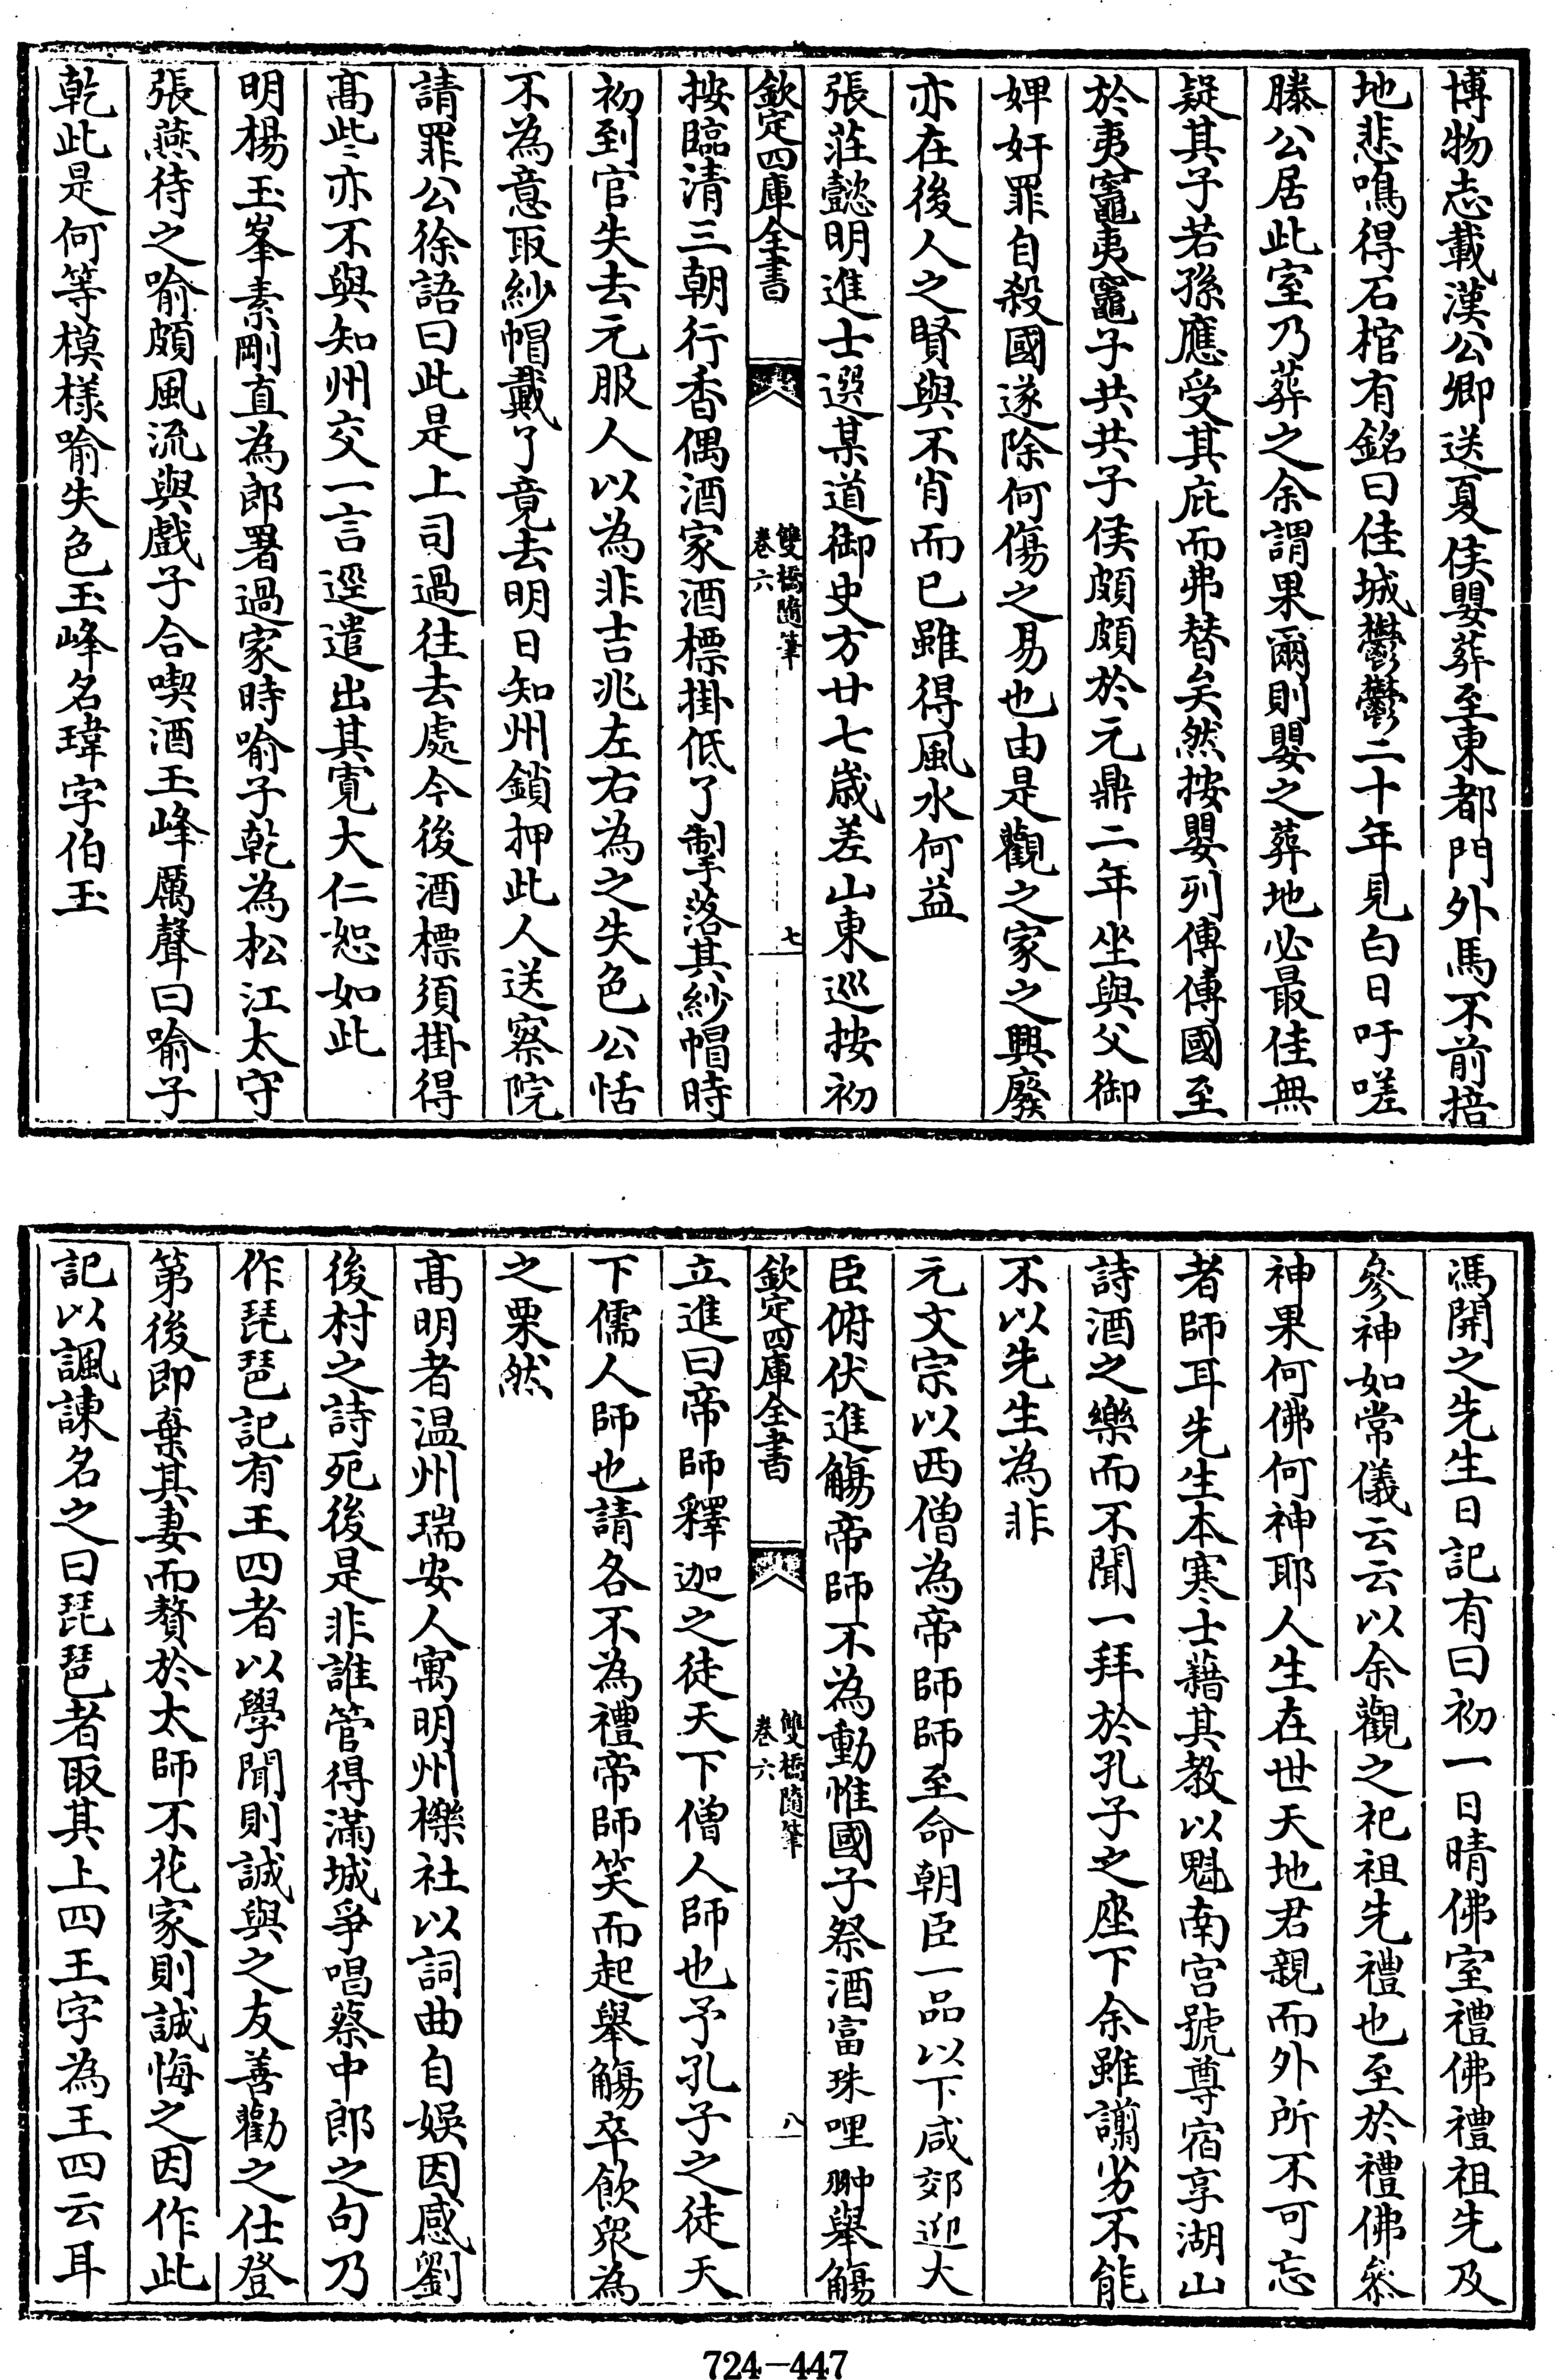 博物志載漢公卿送夏侯嬰葬至東都門外馬不前掊
地悲鳴得石棺有銘曰佳城鬱鬱二十年見白日吁嗟
滕公居此室乃葬之余謂果爾則嬰之葬地必最佳無
疑其子若孫應受其庇而弗替矣然按嬰列傳傳國至
於夷竈夷竈子共共子侯頗頗於元鼎二年坐與父御
婢奸罪自殺國遂除何傷之易也由是觀之家之興廢
亦在後人之賢與不肖而已雖得風水何益
張莊懿明進士選某道御史方廿七歲差山東巡按初
欽定四庫全書
雙橋隨筆
卷六
七
按臨清三朝行香偶酒家酒標掛低了掣落其紗帽時
初到官失去元服人以為非吉兆左右為之失色公恬
不為意取紗帽戴了竟去明日知州鎖押此人送察院
請罪公徐語曰此是上司過往去處今後酒標須掛得
髙些亦不與知州交一言逕遣出其寛大仁恕如此
明楊玉峯素剛直為郎署過家時喻子乾為松江太守
張燕待之喻頗風流與戲子合喫酒玉峰厲聲曰喻子
乾此是何等模様喻失色玉峰名瑋字伯玉
馮開之先生日記有曰初一日晴佛室禮佛禮祖先及
參神如常儀云云以余觀之祀祖先禮也至於禮佛叅
神果何佛何神耶人生在世天地君親而外所不可忘
者師耳先生本寒士藉其教以魁南宫號尊宿享湖山
詩酒之樂而不聞一拜於孔子之座下余雖譾劣不能
不以先生為非
元文宗以西僧為帝師師至命朝臣一品以下咸郊迎大
臣俯伏進觴帝師不為動惟國子祭酒富珠哩翀舉觴
欽定四庫全書
雙橋隨筆
卷六
八
立進曰帝師釋迦之徒天下僧人師也予孔子之徒天
下儒人師也請各不為禮帝師笑而起舉觴卒飲衆為
之栗然
髙明者温州瑞安人寓明州櫟社以詞曲自娛因感劉
後村之詩死後是非誰管得滿城爭唱蔡中郎之句乃
作琵琶記有王四者以學聞則誠與之友善勸之仕登
第後即棄其妻而贅於太師不花家則誠悔之因作此
記以諷諫名之曰琵琶者取其上四王字為王四云耳
724-447